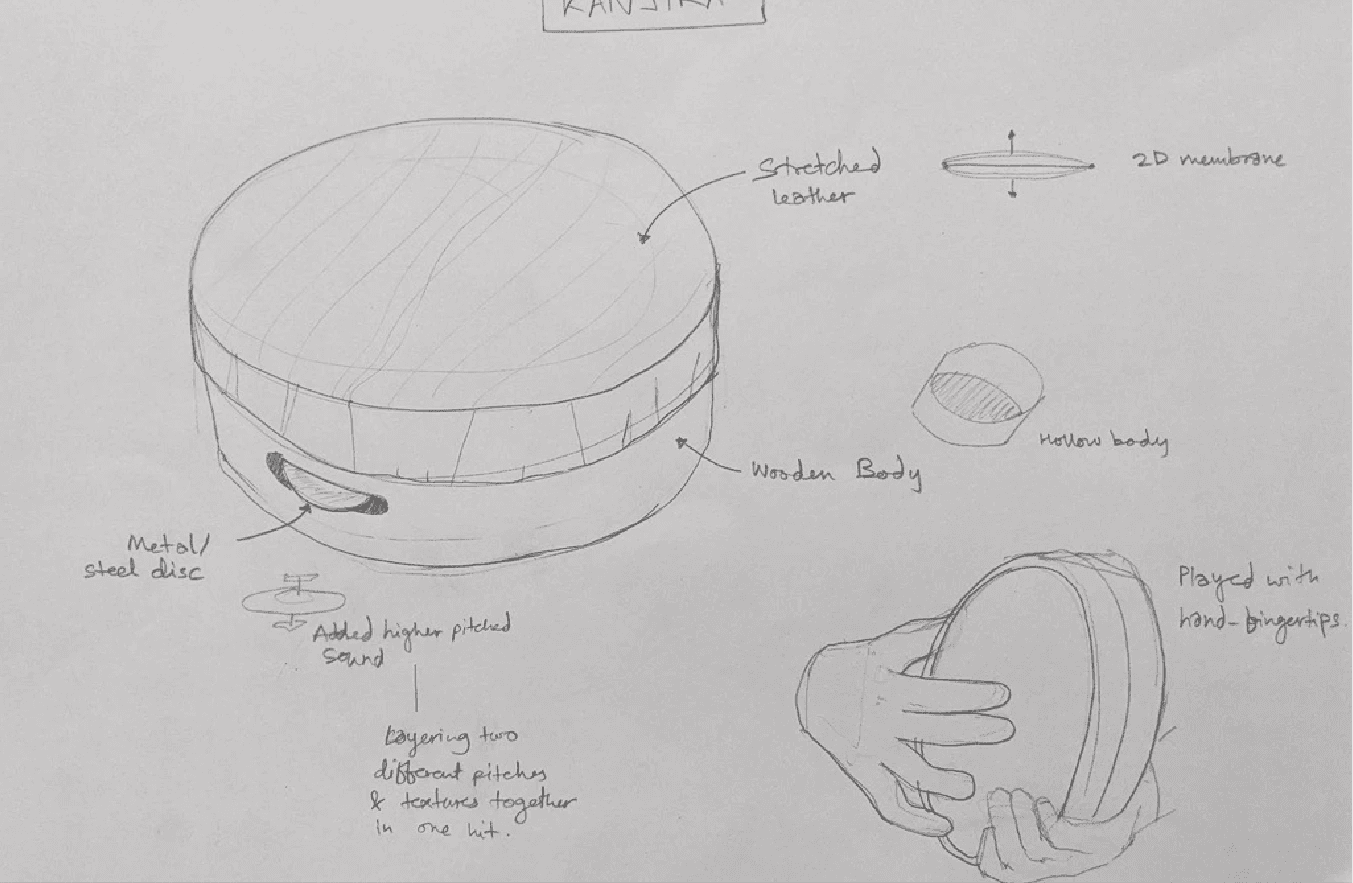 KANJIRA
Stretched
leather
2D membrane
Hollow body
Wooden Body
Metal/
steel disc
Added higher pitched
Sound
Layering two
different pitches
& textures together
in one hit.
Played with
hand-fingertips.